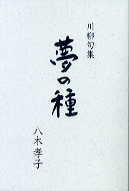 川柳句集
夢の種
八木孝子